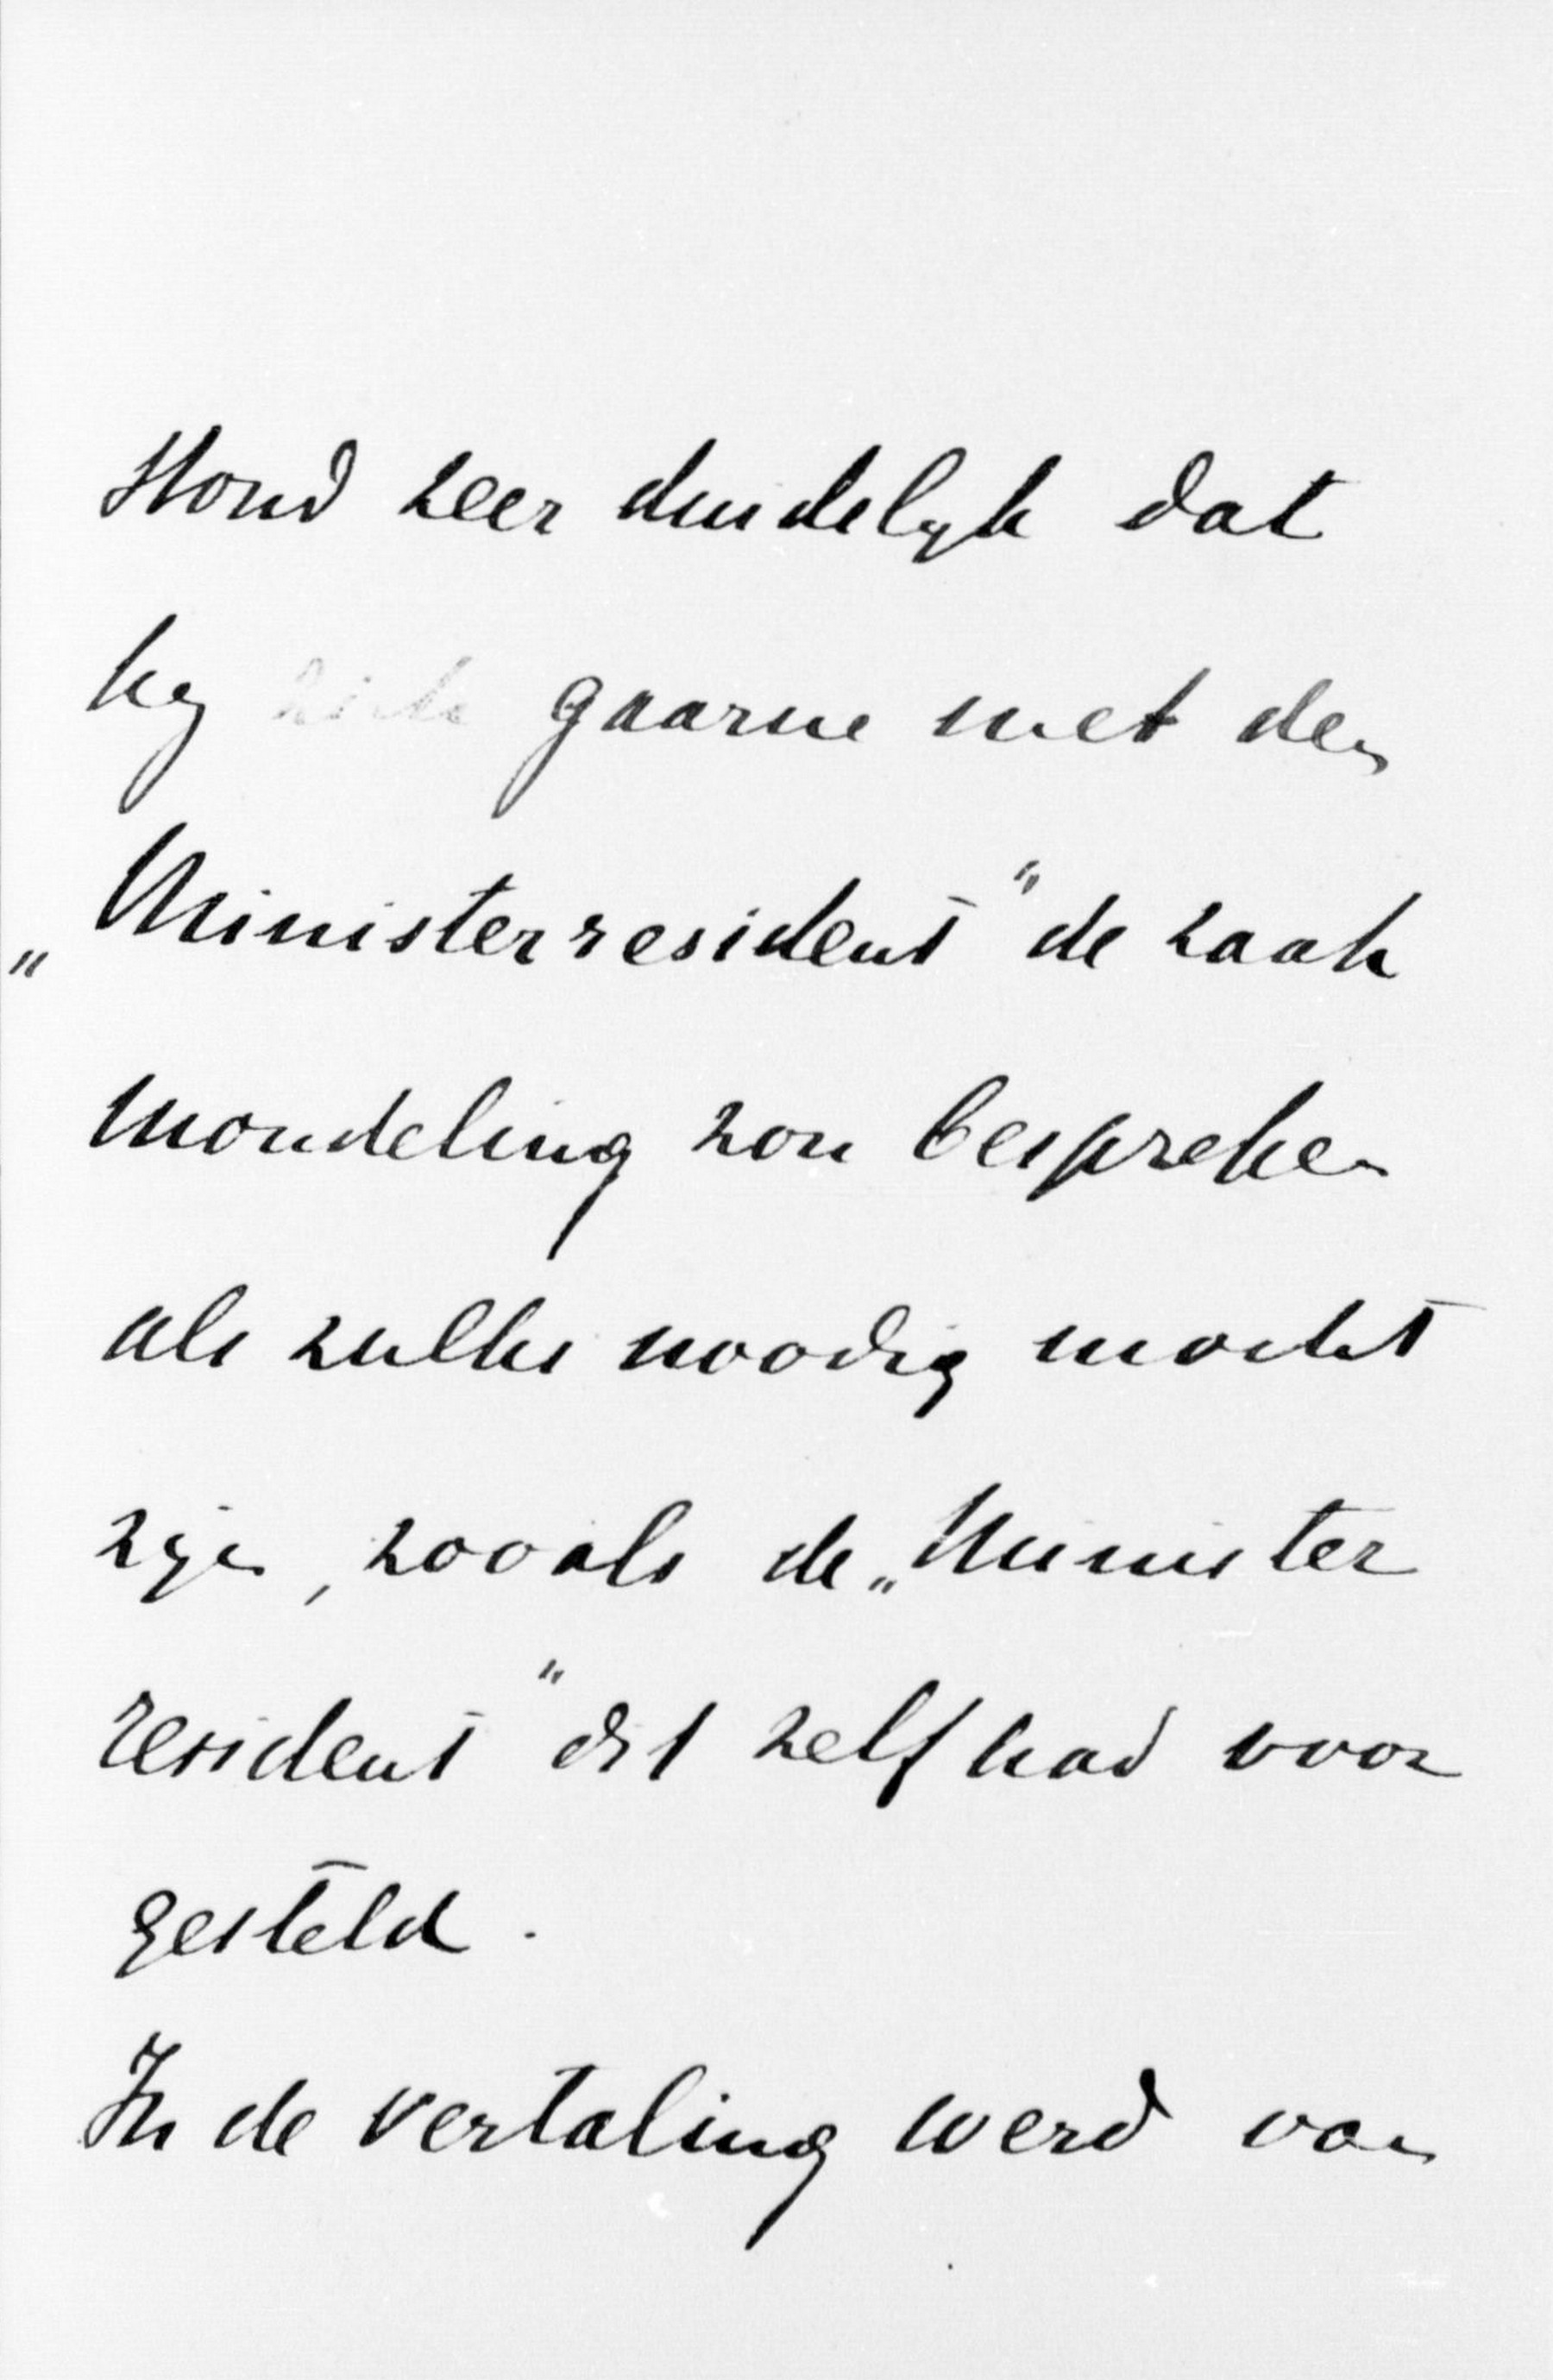 stond zeer duidelyk dat
hy gaarne met den
„Ministerresident" de zaak
mondeling zou bespreken
als zulks noodig mocht
zyn, zooals de „Minister
resident" dit zelf had voor
gesteld.
In de vertaling werd van